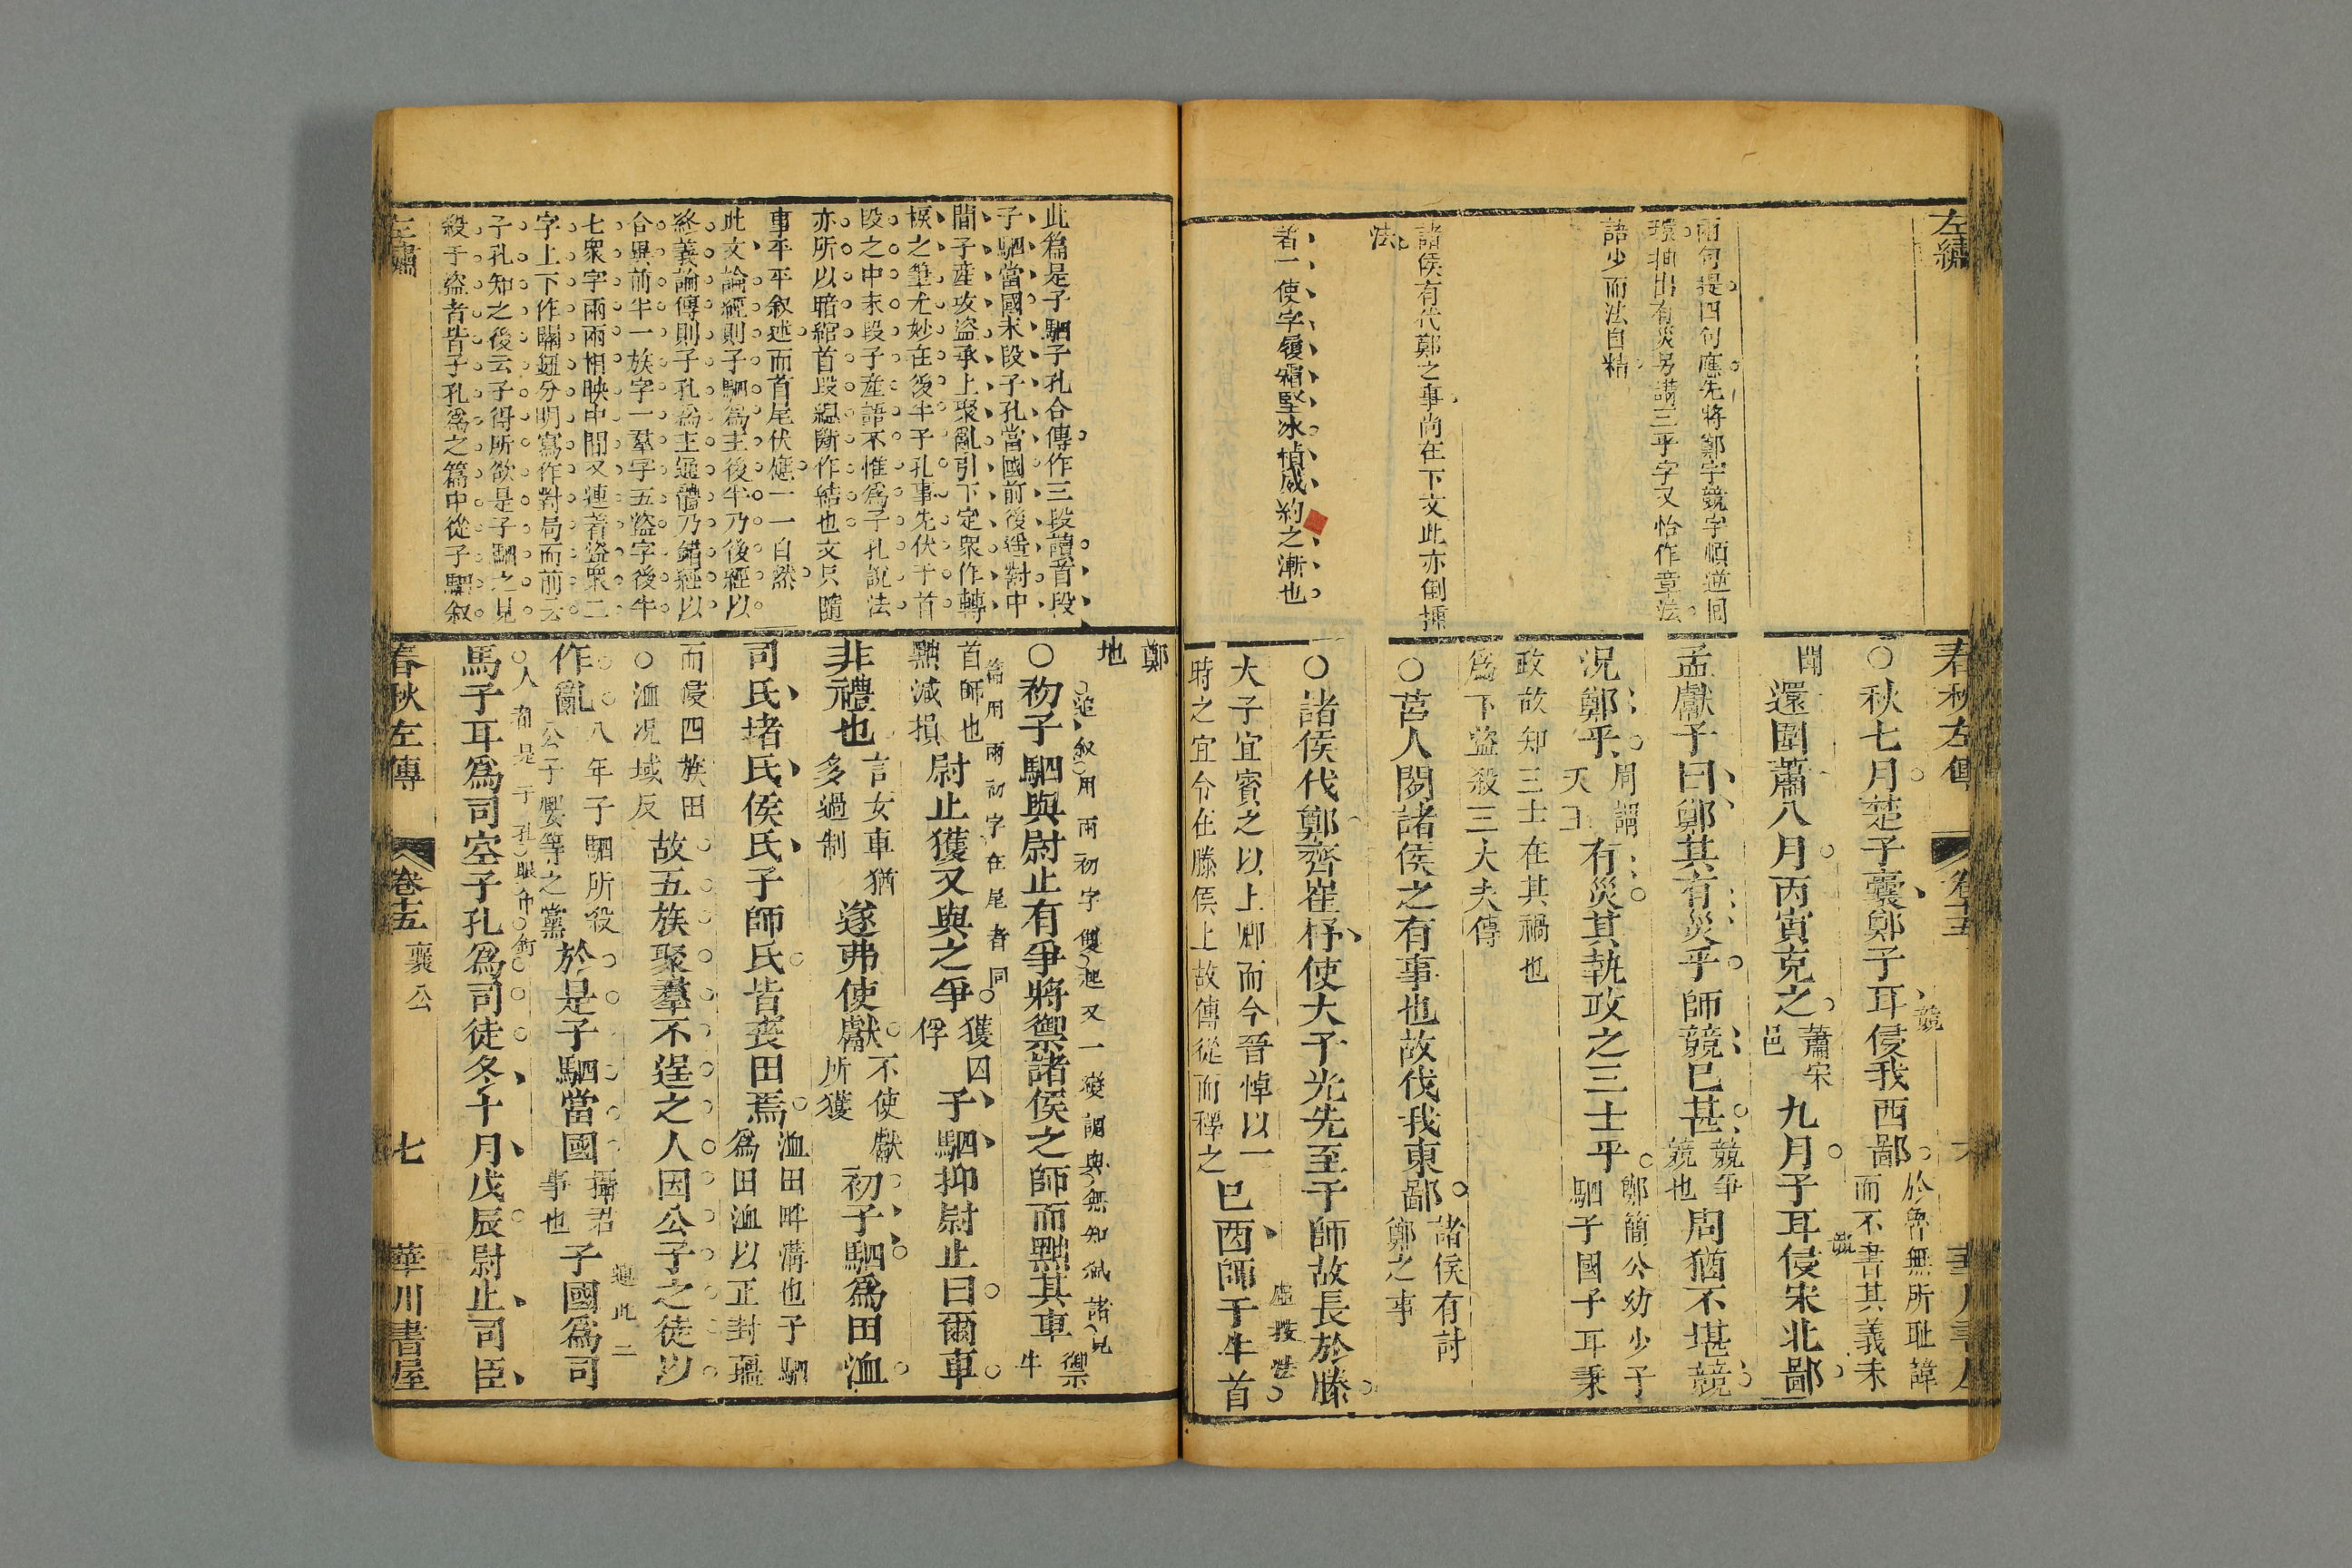 左繡
兩句提四句應先將鄭字競字順逆回
環抽出有災另講三乎字又恰作章法
語少而法自精
諸侯有伐鄭之事尚在下文此亦倒揷
法
著一使字履霜堅冰楨威約之漸也
春秋左傳 卷十五
○秋七月楚子囊鄭子耳侵我西鄙
於魯無所恥諱
而不書其義未
聞
還圍蕭八月丙寅克之
蕭宋
邑
九月子耳侵宋北鄙
孟獻子曰鄭其有災乎師競已甚
競爭
競也
周猶不堪競
況鄭乎
周謂
天王
有災其執政之三士乎
鄭簡公幼少子
駟子國子耳秉
政故知三士在其禍也
爲下盜殺三大夫傳
○莒人間諸侯之有事也故伐我東鄙
諸侯有討
鄭之事
○諸侯伐鄭齊崔杼使大子光先至于師故長於滕
大子宜賓之以上卿而今晉悼以一
時之宜令在滕侯上故傳從而釋之
己酉師于牛首
鄭
地
此篇是子駟子孔合傳作三段讀首段
子駟當國末段子孔當國前後遙對中
間子產攻盜承上聚亂引下定衆作轉
棙之筆尤妙在後半子孔事先伏于首
段之中末段子產語不惟爲子孔說法
亦所以暗綰首段縕斷作結也文只隨
事平平叙述而首尾伏應一一自然
此文論經則子駟爲主後半乃後經以
終義論傳則子孔爲主通體乃錯經以
合異前半一族字一羣字五盜字後半
七衆字兩兩相映中間又連著盜衆二
字上下作關鈕分明寫作對局而前云
子孔知之後云子得所欲是子駟之見
殺于盜者皆子孔爲之篇中從子駟叙
○初子駟與尉止有爭將禦諸侯之師而黜其車
禦
牛
首師也
黜減損
尉止獲又與之爭
獲囚
俘
子駟抑尉止曰爾車
非禮也
言女車猶
多過制
遂弗使獻
不使獻
所獲
初子駟爲田洫
司氏堵氏侯氏子師氏皆喪田焉
洫田畔溝也子駟
爲田洫以正封疆
而侵四族田
○洫況域反
故五族聚羣不逞之人因公子之徒以
作亂
八年子駟所殺
公子嬰等之黨
於是子駟當國
攝君
事也
子國爲司
馬子耳爲司空子孔爲司徒冬十月戊辰尉止司臣
左繡
春秋左傳 卷十五 襄公 七 華川書屋